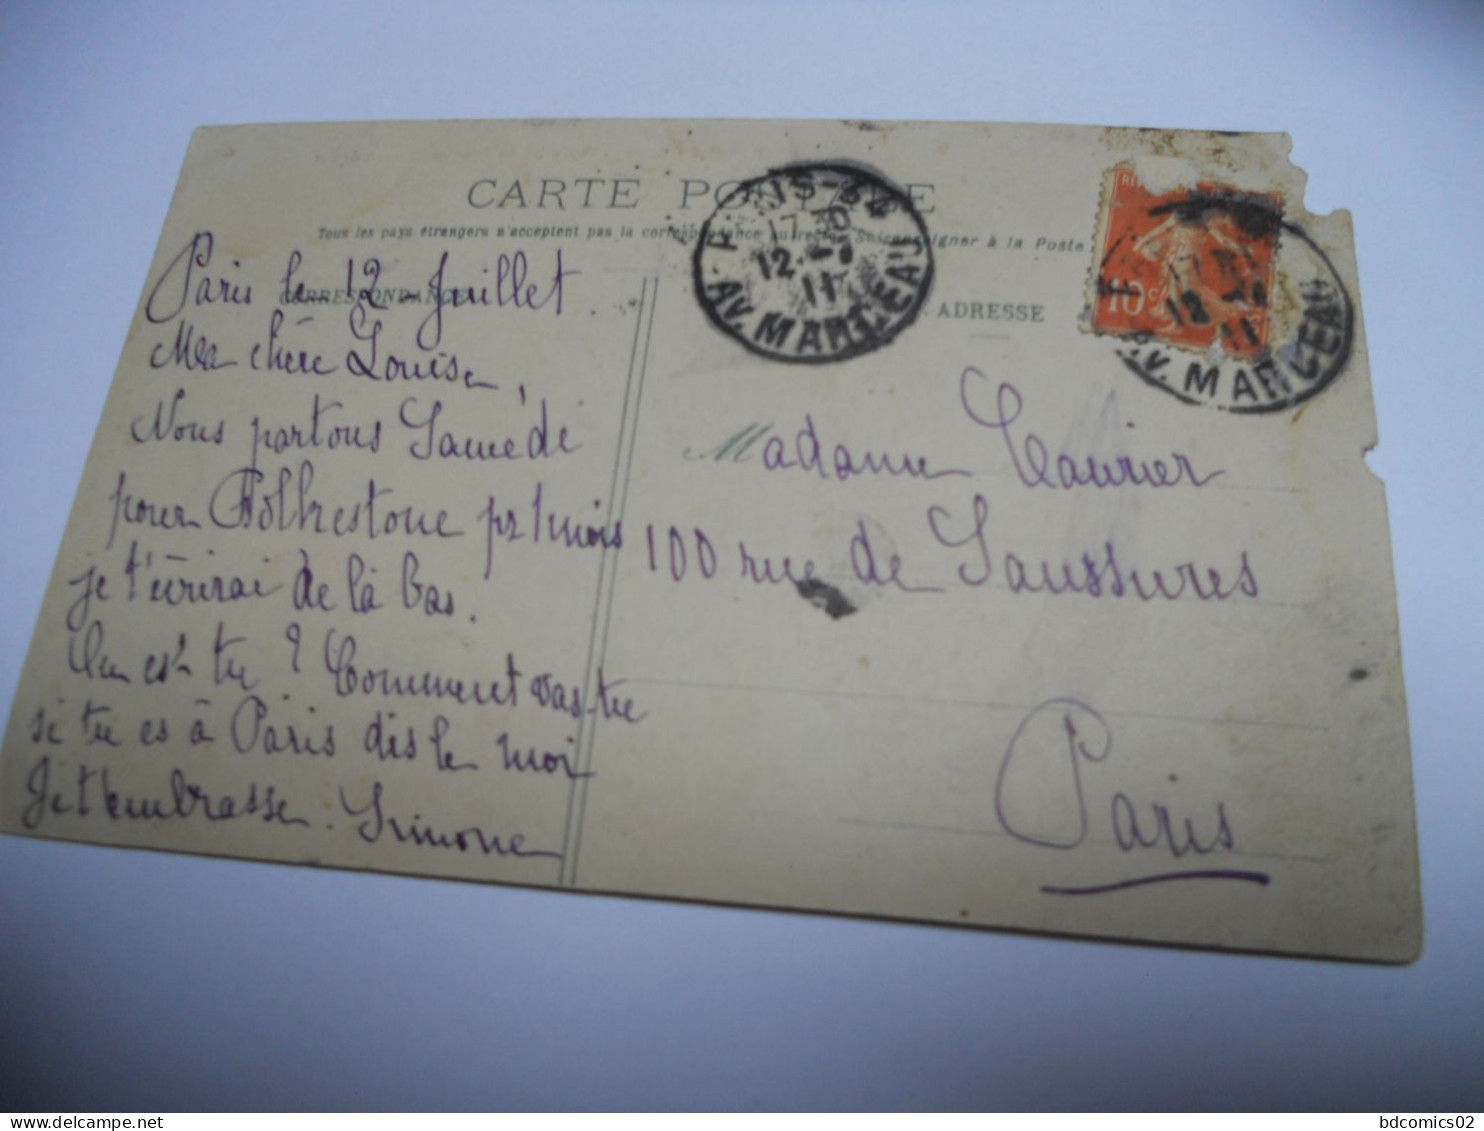 CARTE POSTALE
Tous les pays étrangers n'acceptent pas la correspondance au recto. Se renseigner à la Poste
CORRESPONDANCE
ADRESSE
PARIS-34
17 30
12 - 7
11
AV. MARCEAU
10c
12 - 7
11
AV. MARCEAU
Paris le 12 Juillet
Ma chère Louise,
Nous partons Samedi
pour Folkestone pr 1 mois
je t'écrirai de là bas.
Où es-tu ? Comment vas tu
si tu es à Paris dis le moi
Je t'embrasse. Simone
Madame
100 rue de Saussures
Paris
bdcomics02